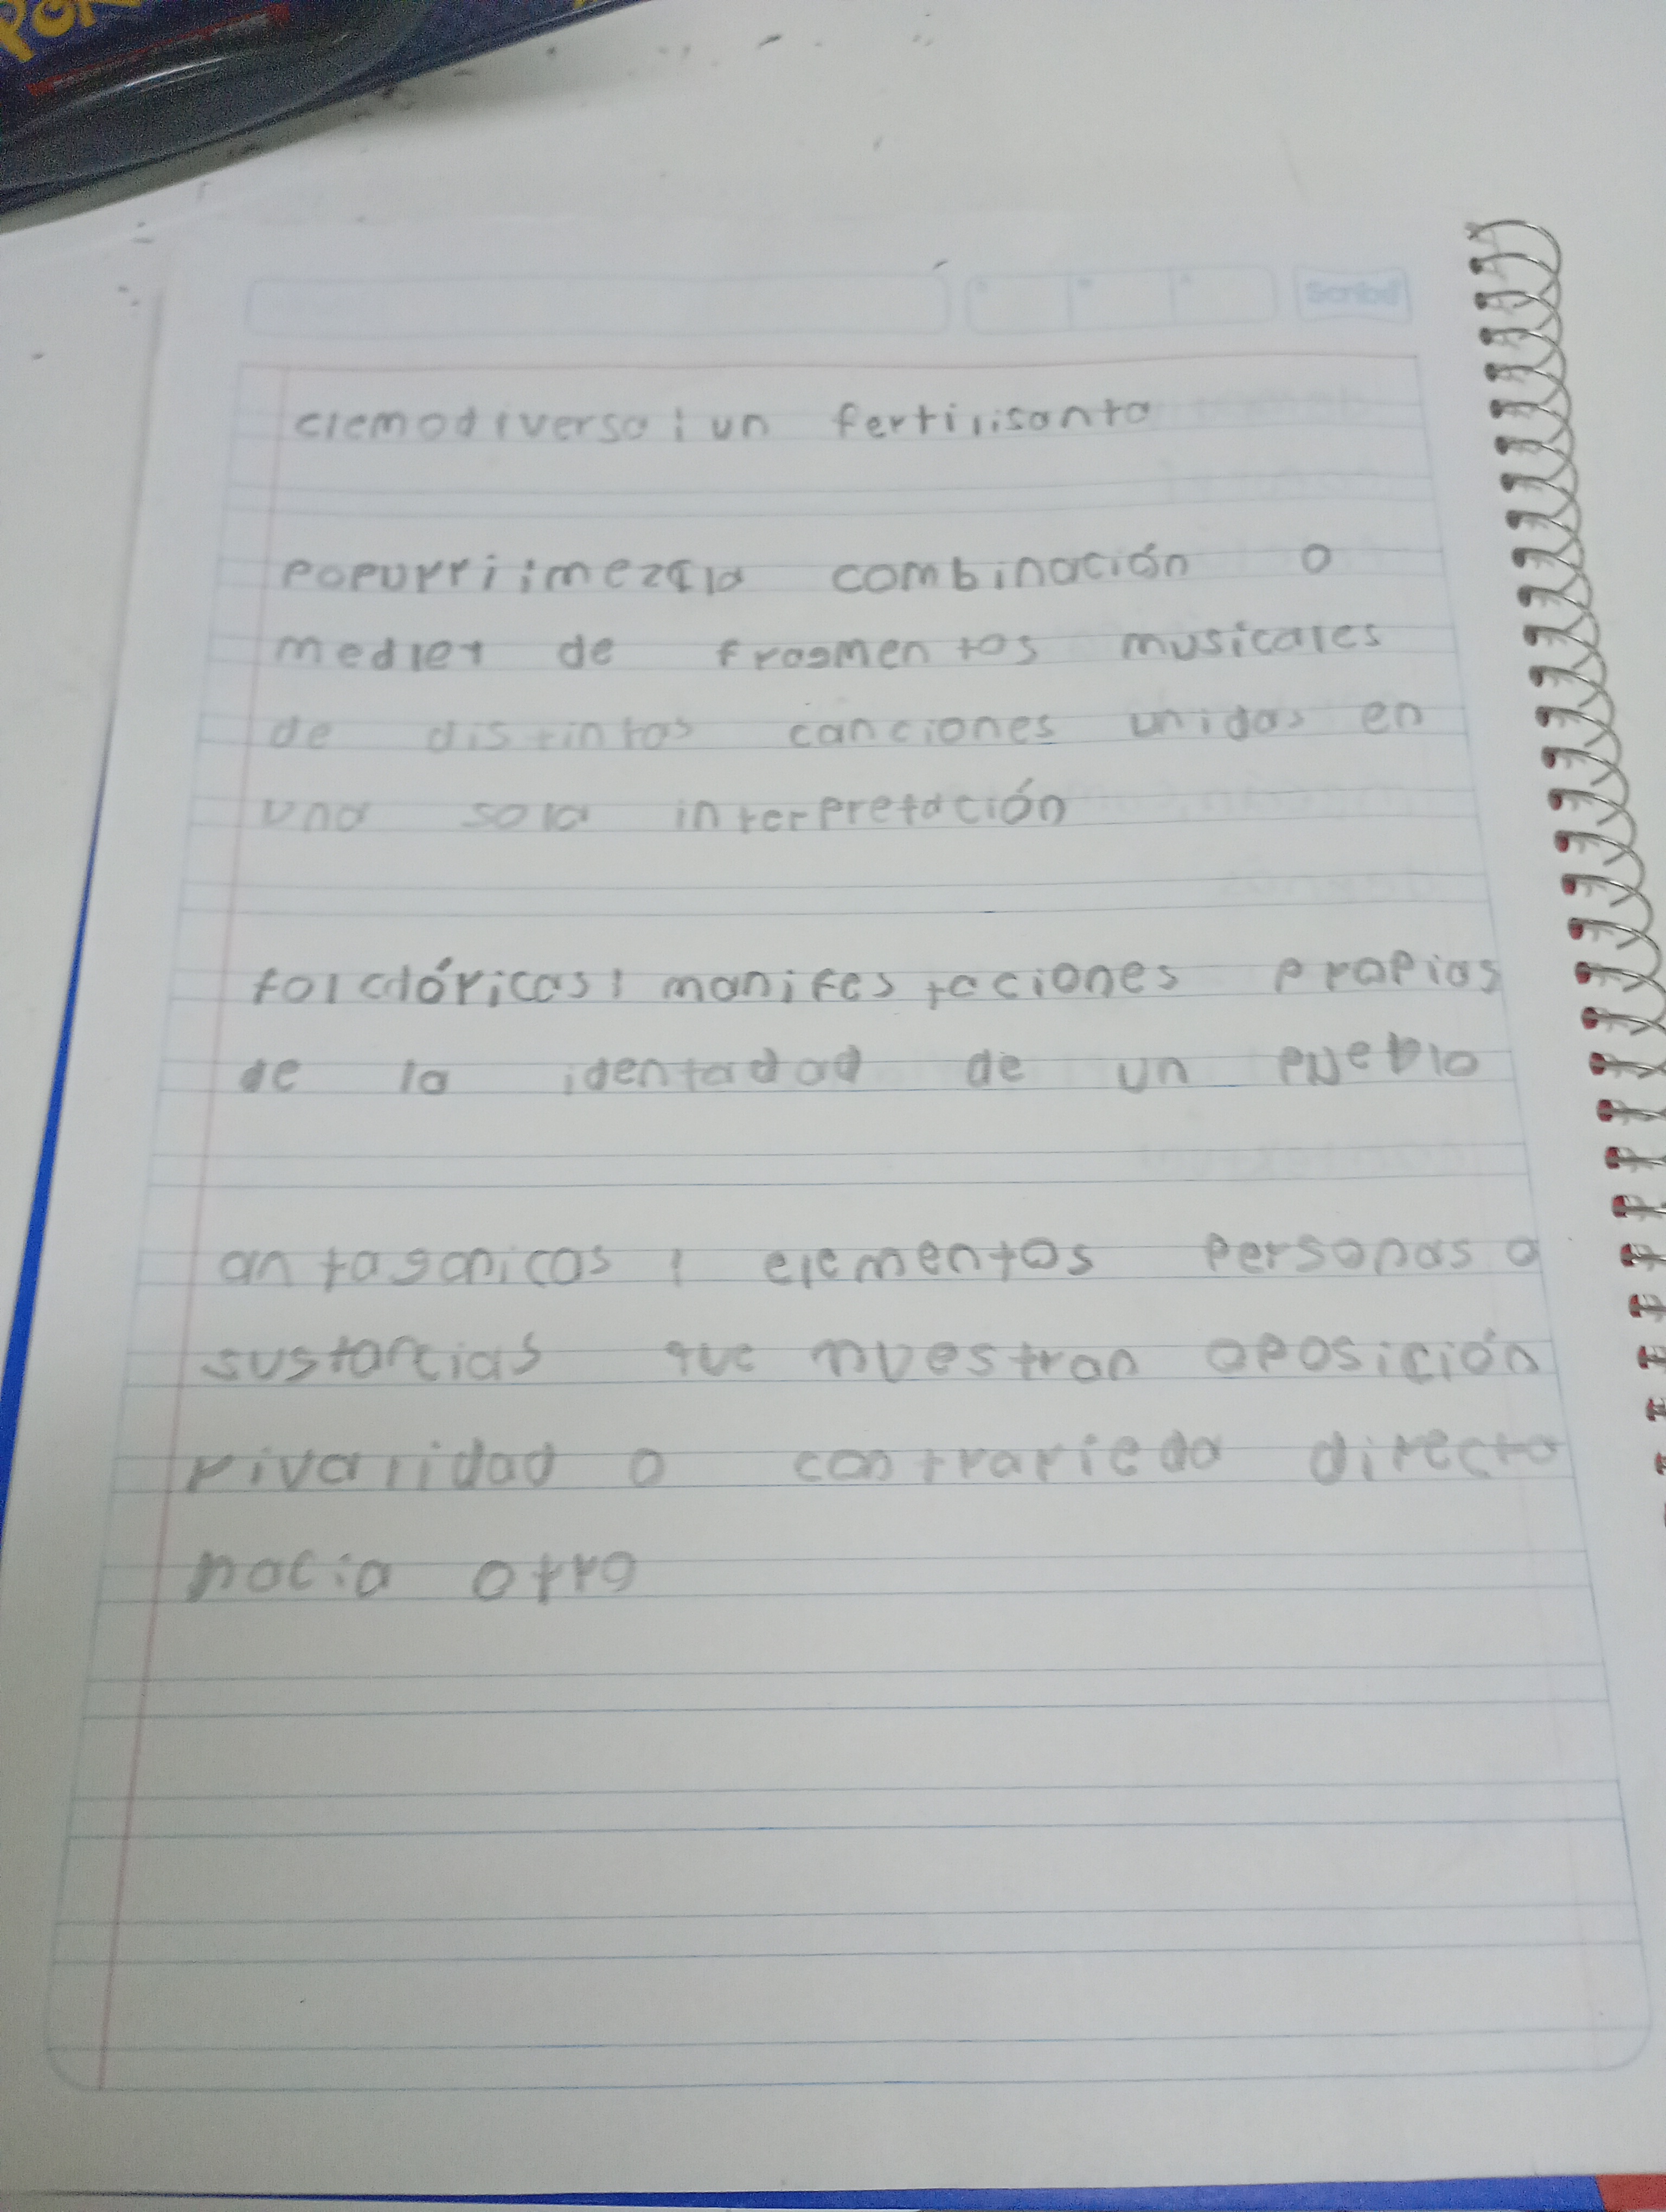 POK
Scribe
clemodiverso: un fertilisanta
popurri: mezcla combinación o
medlet de fragmentos musicales
de distintas canciones unidas en
una sola interpretación
folclóricas: manifestaciones propias
de la identadad de un pueblo
antagonicas: elementos personas o
sustancias que muestran oposición
rivalidad o contrarieda directa
hacia otro